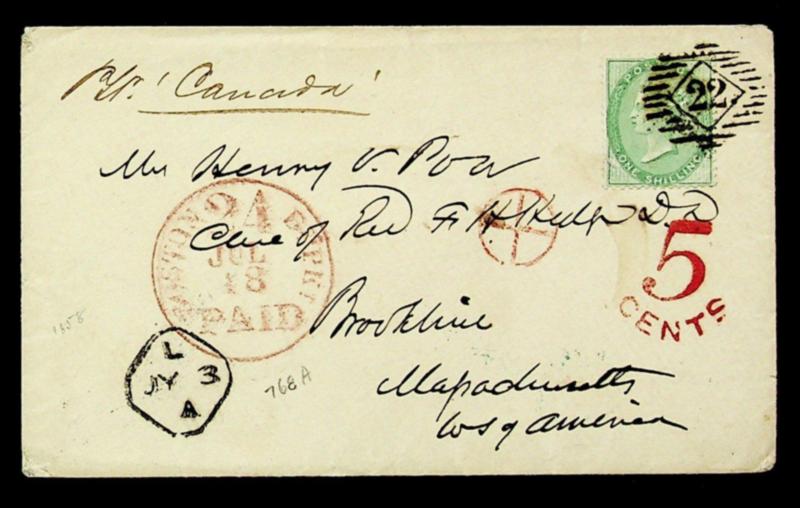 Per. 'Canada'
POSTAGE
ONE SHILLING
22
Mr Henry V. Poor
Care of Rev F H Hedge D.D
BOSTON BR. PKT.
24
JUL
18
PAID
5
CENTS
Brookline
Massachusetts
U S of America
L
JY 3
A
1858
768A